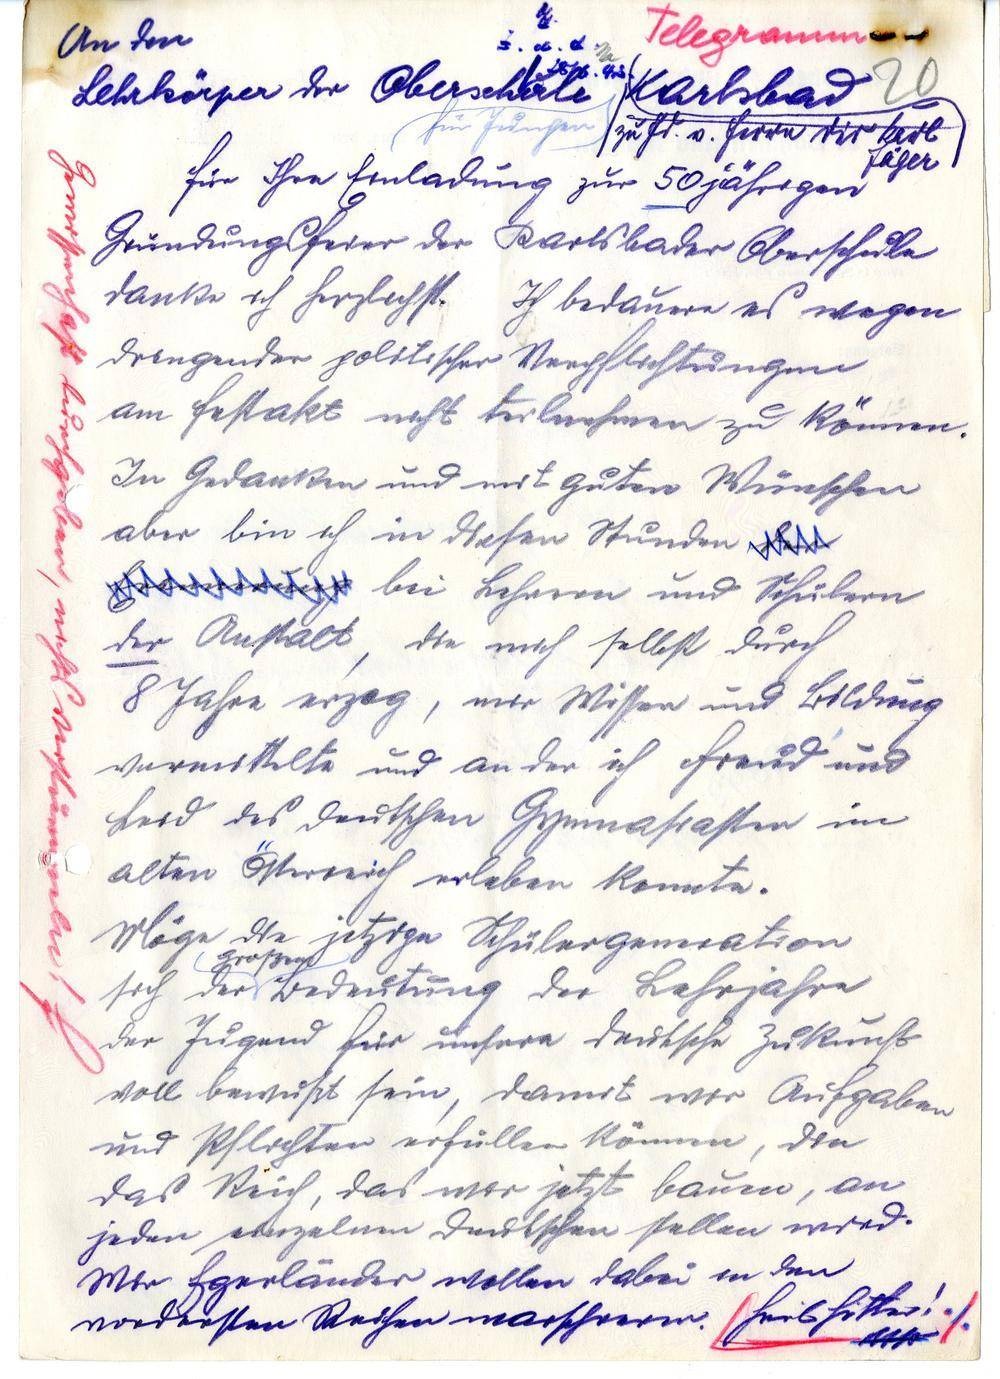 Telegramm
An den
20
Lehrkörper der Oberschule Karlsbad
für Jungen
zu Hd. v. Herrn Dir Karl
Jäger
Für Ihre Einladung zur 50jährigen
Gründungsfeier der Karlsbader Oberschule
danke ich herzlichst. Ich bedauere es wegen
dringender politischer Verpflichtungen
am Festakt nicht teilnehmen zu können.
In Gedanken und mit guten Wünschen
aber bin ich in diesen Stunden
bei Lehrern und Schülern
der Anstalt, die mich selbst durch
8 Jahre erzog, mir Wissen und Bildung
vermittelte und an der ich Freud und
Leid des deutschen Gymnasiasten im
alten Österreich erleben konnte.
Möge die jetzige Schülergeneration
großen
sich der Bedeutung der Lehrjahre
der Jugend für unsere deutsche Zukunft
voll bewußt sein, damit wir Aufgaben
und Pflichten erfüllen können, die
das Reich, das wir jetzt bauen, an
jeden einzelnen Deutschen stellen wird.
Wir Egerländer wollen dabei in den
vordersten Reihen marschieren. Heil Hitler!